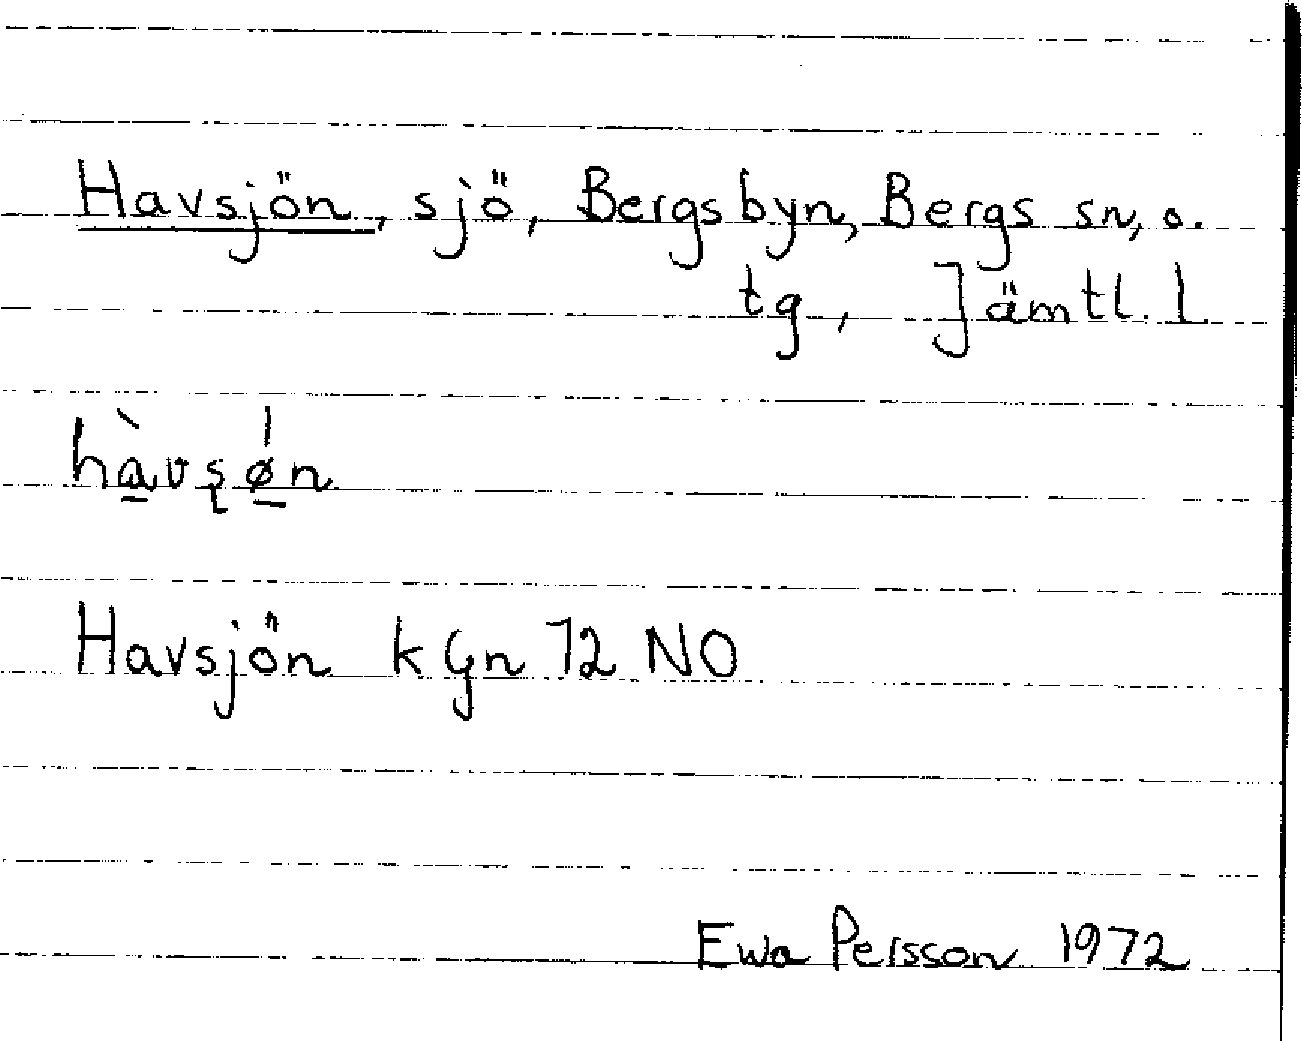 Havsjön, sjö, Bergsbyn, Bergs sn, o.
tg, Jämtl. l
hà̱vşǿ̱n
Havsjön k Gn 72 NO
Ewa Persson 1972